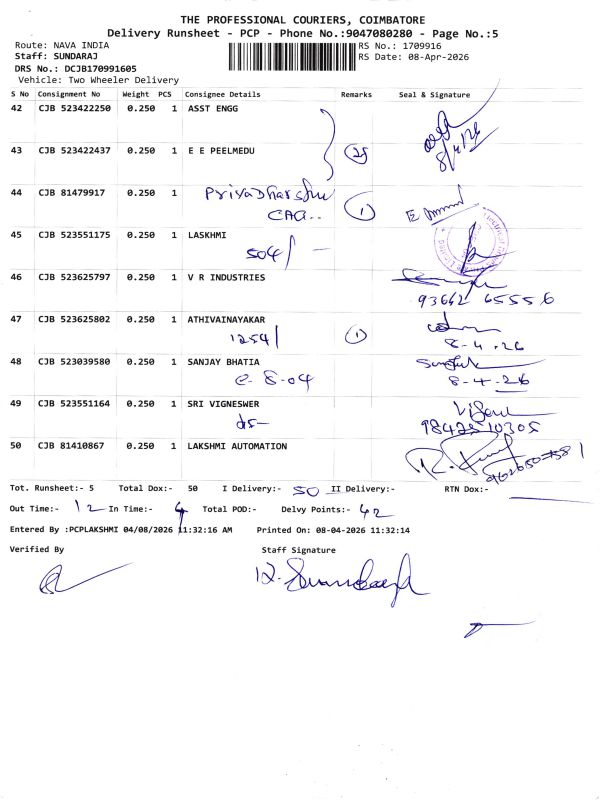 THE PROFESSIONAL COURIERS, COIMBATORE
Delivery Runsheet - PCP - Phone No.:9047080280 - Page No.:5
Route: NAVA INDIA
RS No.: 1709916
Staff: SUNDARAJ
RS Date: 08-Apr-2026
DRS No.: DCJB170991605
Vehicle: Two Wheeler Delivery
S No Consignment No Weight PCS Consignee Details Remarks Seal & Signature
42 CJB 523422250 0.250 1 ASST ENGG
8/4/26
43 CJB 523422437 0.250 1 E E PEELMEDU
44 CJB 81479917 0.250 1 Priyadharshni
1
45 CJB 523551175 0.250 1 LASKHMI
504/
46 CJB 523625797 0.250 1 V R INDUSTRIES
93642 65556
47 CJB 523625802 0.250 1 ATHIVAINAYAKAR
1254/ 1
8-4-26
48 CJB 523039580 0.250 1 SANJAY BHATIA
e-8-04
8-4-26
49 CJB 523551164 0.250 1 SRI VIGNESWER
9842510305
50 CJB 81410867 0.250 1 LAKSHMI AUTOMATION
Tot. Runsheet:- 5 Total Dox:- 50 I Delivery:- 50 II Delivery:- RTN Dox:-
Out Time:- 12 In Time:- 4 Total POD:- Delvy Points:- 42
Entered By :PCPLAKSHMI 04/08/2026 11:32:16 AM Printed On: 08-04-2026 11:32:14
Verified By Staff Signature